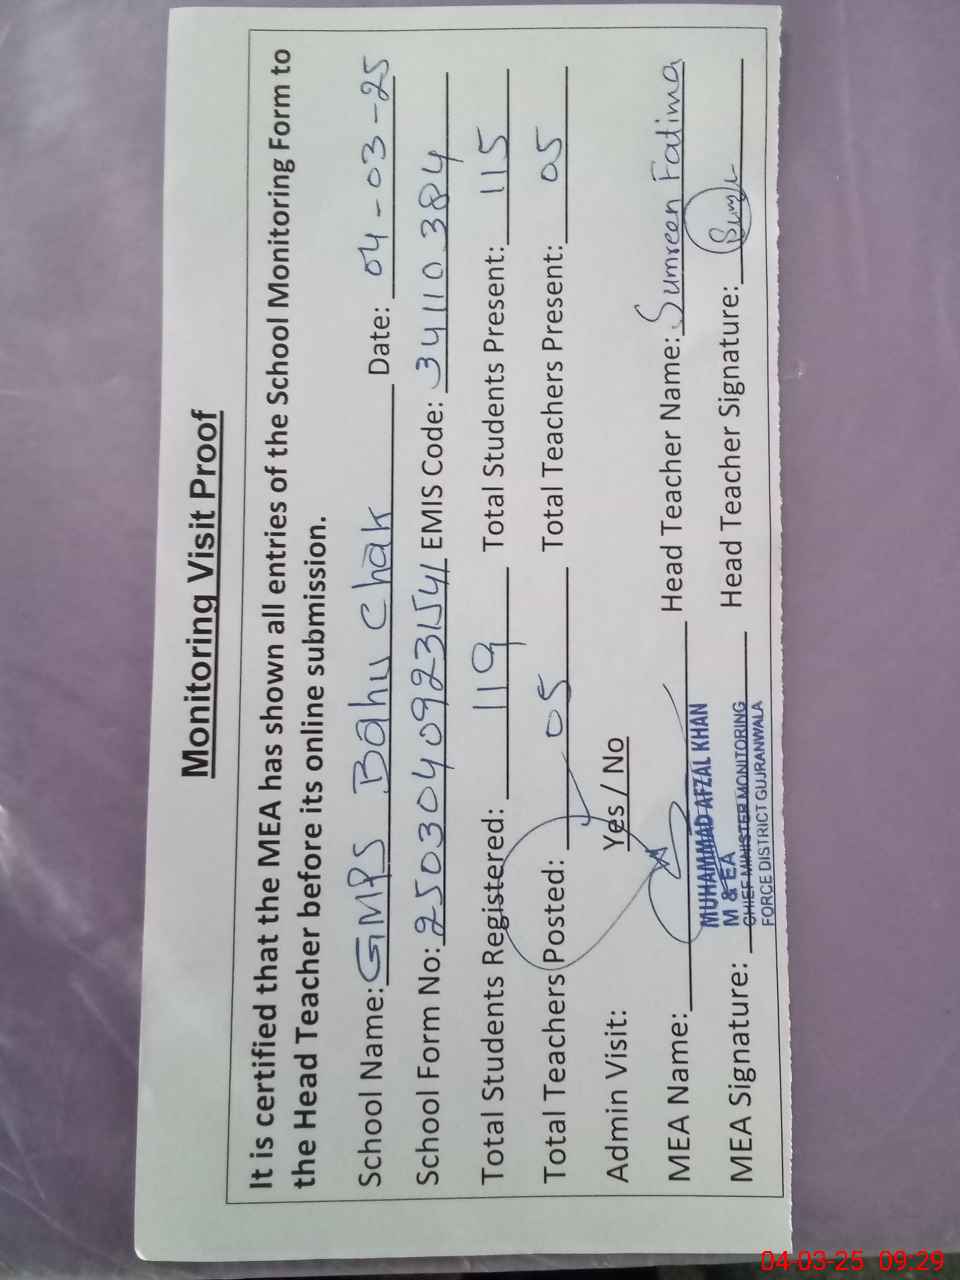 Monitoring Visit Proof
It is certified that the MEA has shown all entries of the School Monitoring Form to
the Head Teacher before its online submission.
School Name: GMPS Bahu Chak Date: 04-03-25
School Form No: 25030409231541 EMIS Code: 34110384
Total Students Registered: 119 Total Students Present: 115
Total Teachers Posted: 05 Total Teachers Present: 05
Admin Visit: Yes / No
MEA Name: Head Teacher Name: Sumreen Fatima
MUHAMMAD AFZAL KHAN
M & EA
MEA Signature: Head Teacher Signature:
CHIEF MINISTER MONITORING
FORCE DISTRICT GUJRANWALA
04-03-25 09:29